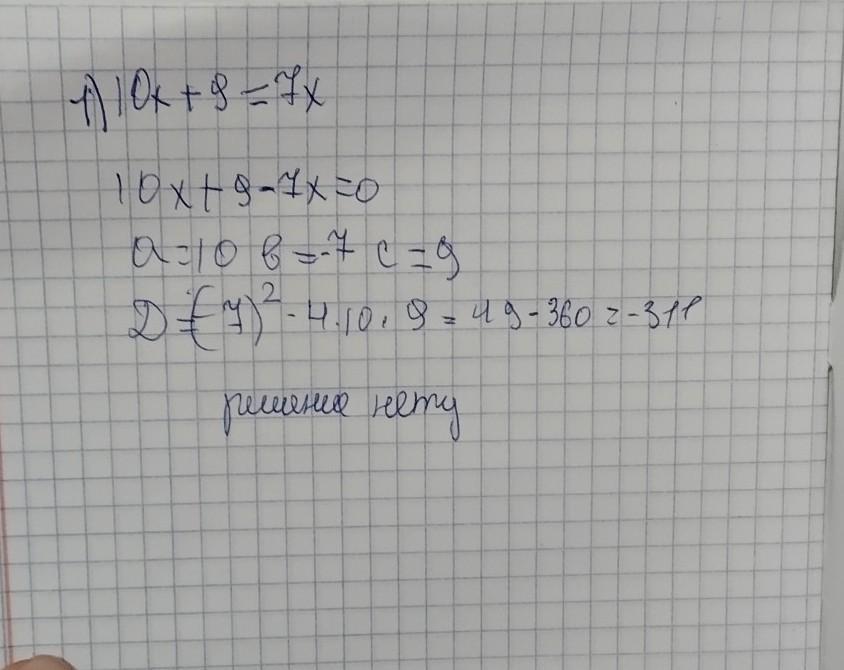 1) 10x + 9 = 7x
10x + 9 - 7x = 0
a = 10 в = -7 c = 9
D = (-7)² - 4 · 10 · 9 = 49 - 360 = -311
решение нету